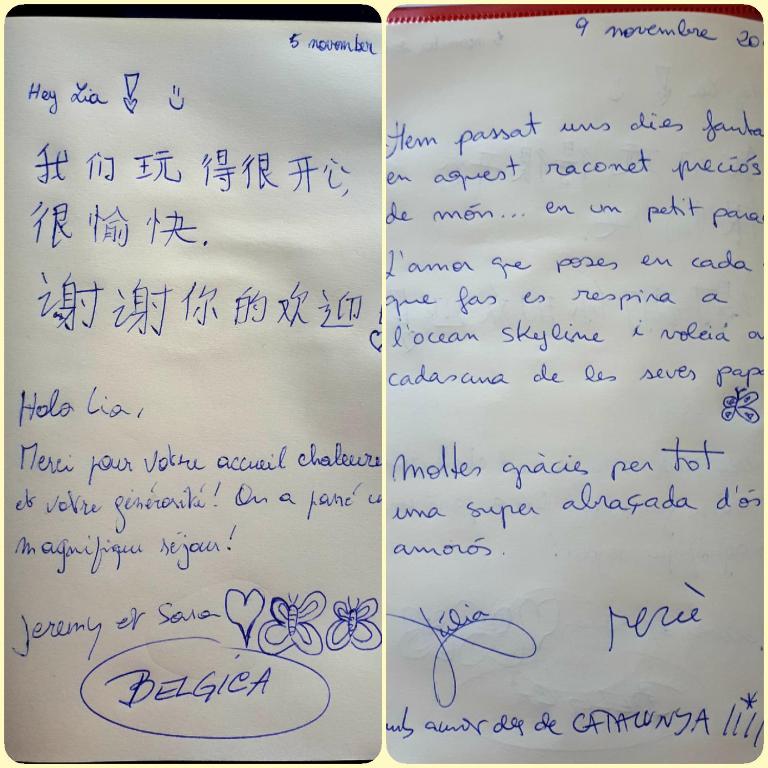 5 november
Hey Lia ! :)
我们玩得很开心,
很愉快.
谢谢你的欢迎!
Hola Lia,
Merci pour votre accueil chaleure
et votre générosité! On a passé u
magnifique séjour!
Jeremy et Sara
BELGICA
9 novembre 20
Hem passat uns dies fanta
en aquest raconet preciós
de món... en un petit para
L'amor que poses en cada
que fas es respira a
l'ocean skyline i voleiá a
cadascuna de les seves pape
Moltes gràcies per tot
una super abraçada d'ós
amorós.
Júlia Mercè
amb amor des de CATALUNYA